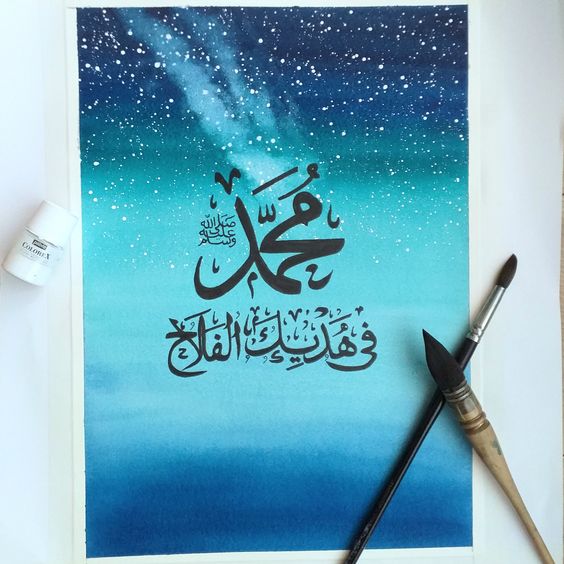 مُحَمَّد
صَلَى الله
عليه
وسلم
فى هَدْيِكَ الفَلَاح
COLOREX